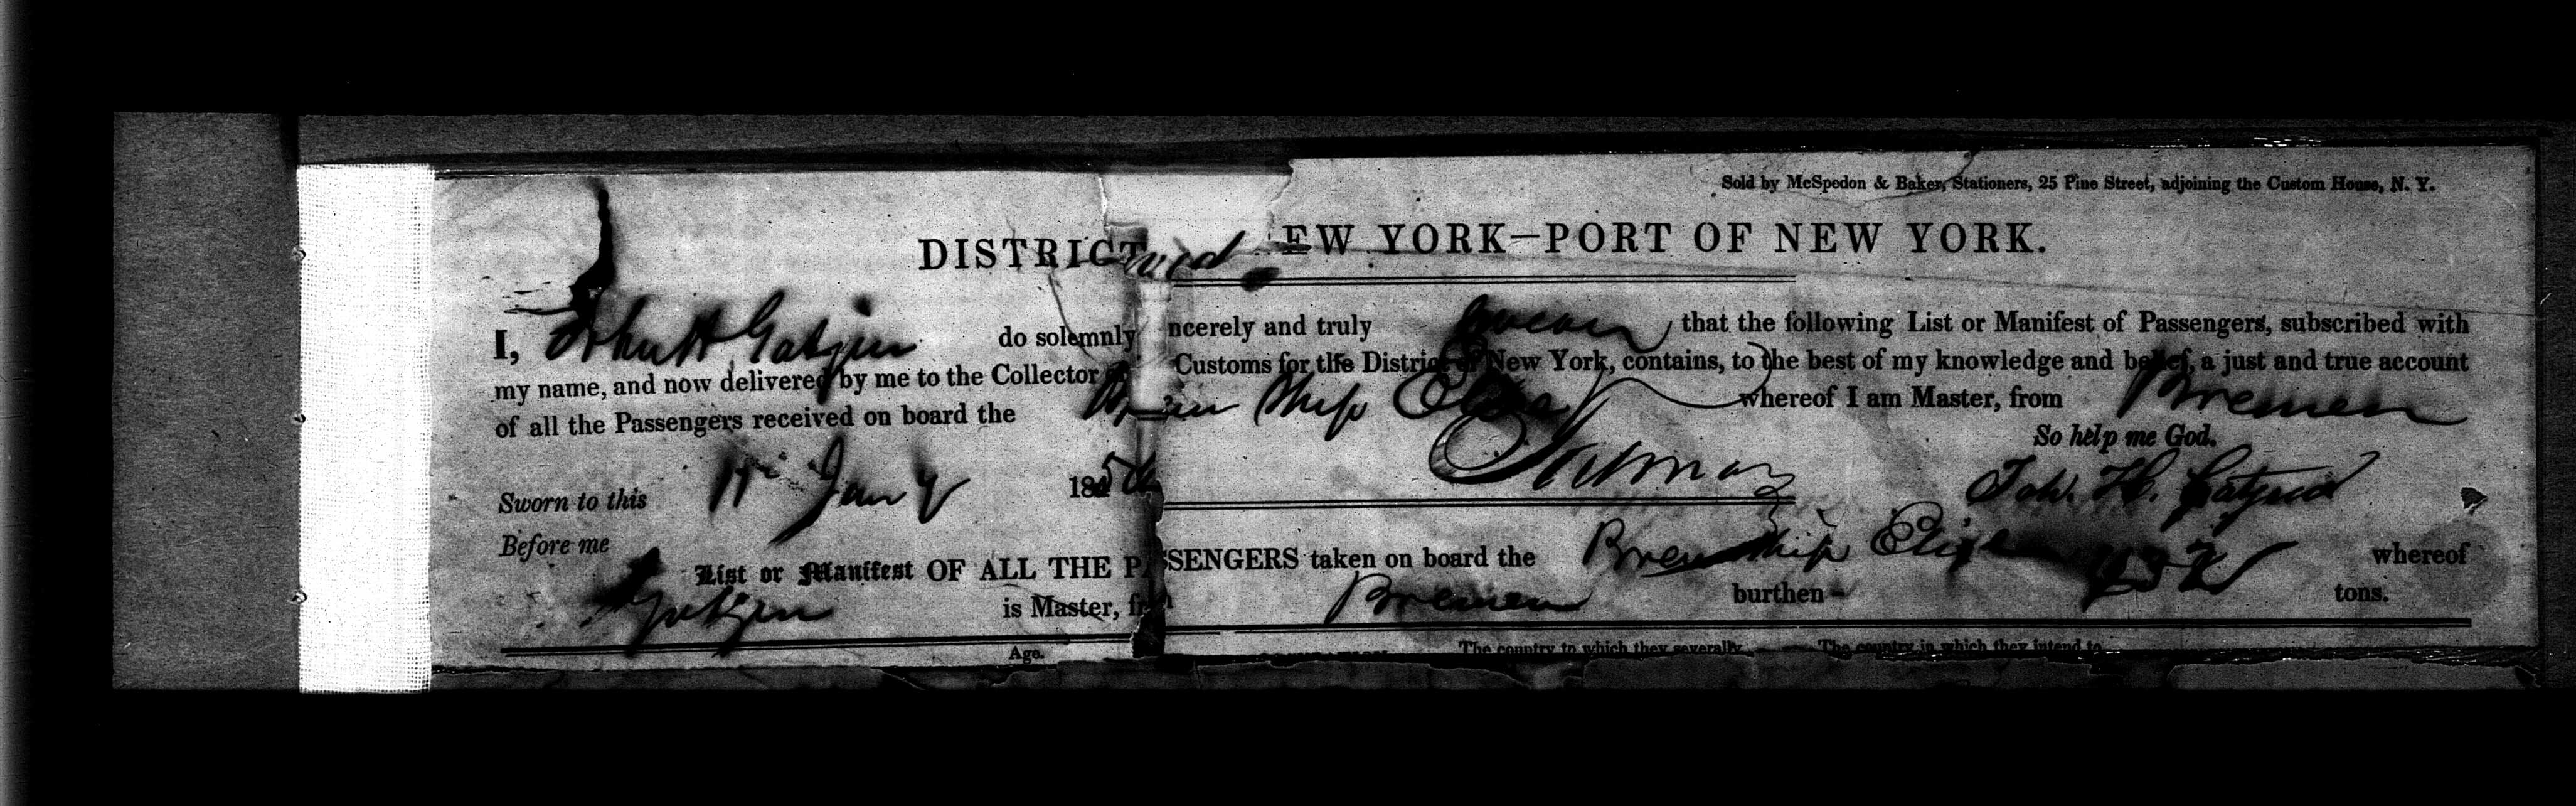 Sold by McSpedon & Baker, Stationers, 25 Pine Street, adjoining the Custom House, N. Y.
DISTRICT EW YORK—PORT OF NEW YORK.
I, John H Gatjen do solemnly ncerely and truly swear, that the following List or Manifest of Passengers, subscribed with
my name, and now delivered by me to the Collector Customs for the District of New York, contains, to the best of my knowledge and belief, a just and true account
of all the Passengers received on board the Ship whereof I am Master, from Bremen
So help me God.
Sworn to this Jany 185 Joh. H. Gatjen
Before me
List or Manifest OF ALL THE PASSENGERS taken on board the Brem Ship Eliza whereof
Gatjen is Master, from Bremen burthen tons.
Age. The country to which they severally The country in which they intend to